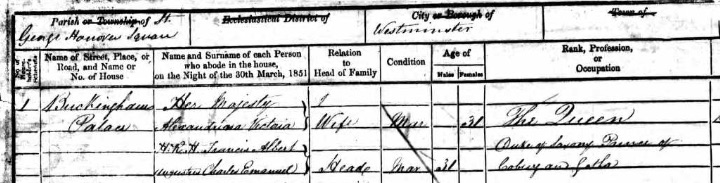 Parish or Township of St. Ecclesiastical District of City or Borough of Town of
George Hanover Square Westminster
Name of Street, Place, or Road, and Name or No. of House
Name and Surname of each Person who abode in the house, on the Night of the 30th March, 1851
Relation to Head of Family
Condition
Age of
Males Females
Rank, Profession, or Occupation
1 Buckingham Her Majesty }
Palace Alexandrina Victoria } Wife Mar 31 The Queen
H.R.H. Francis Albert } Duke of Saxony Prince of
Augustus Charles Emanuel } Head Mar 31 Coburg an Gotha